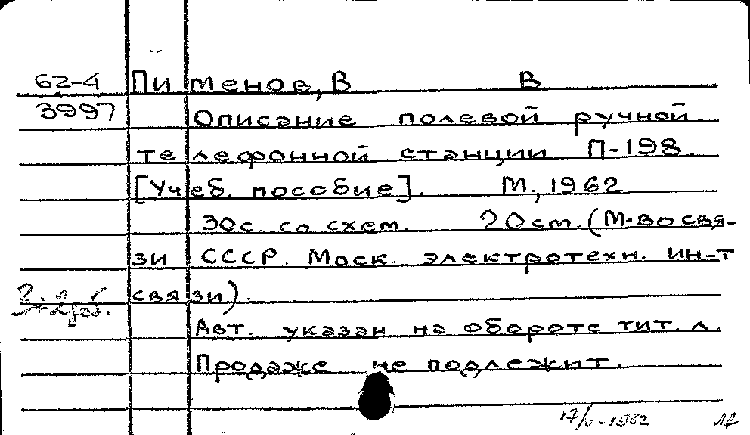 62-4 Пименов, В В
3997 Описание полевой ручной
телефонной станции П-198
[Учеб. пособие]. М., 1962
30с. со схем. 20см. (М-во свя-
зи СССР. Моск. электротехн. ин-т
связи).
Авт. указан на обороте тит. л.
Продаже не подлежит.
-1962 17